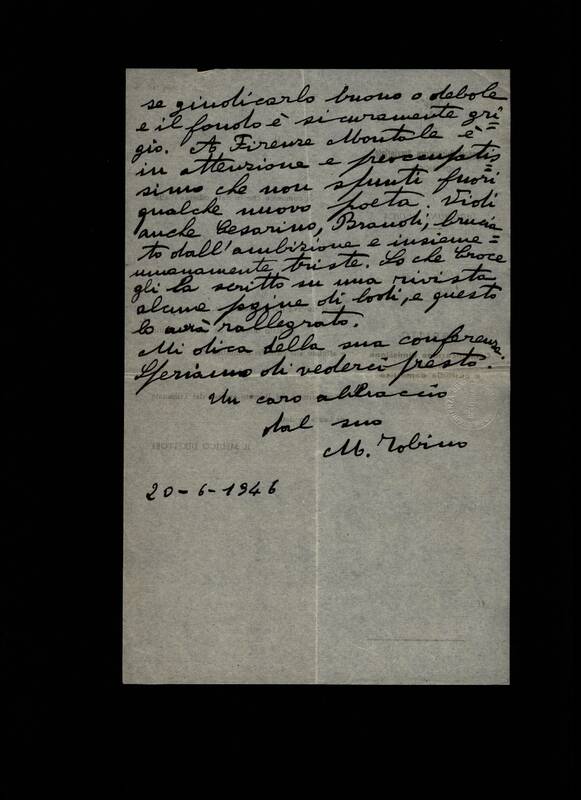 se giudicarlo buono o debole
e il fondo è sicuramente gri=
gio. A Firenze Montale è
in attenzione e preoccupatis=
simo che non spunti fuori
qualche nuovo poeta. Vidi
anche Cesarino, Brandi, brucia=
to dall'ambizione e insieme
umanamente triste. So che Croce
gli ha scritto su una rivista
alcune pgine di lodi, e questo
lo avrà rallegrato.
Mi dica della sua conferenza.
Speriamo di vederci presto.
Un caro abbraccio
dal suo
M. Tobino
20-6-1946
IL MEDICO DIRETTORE